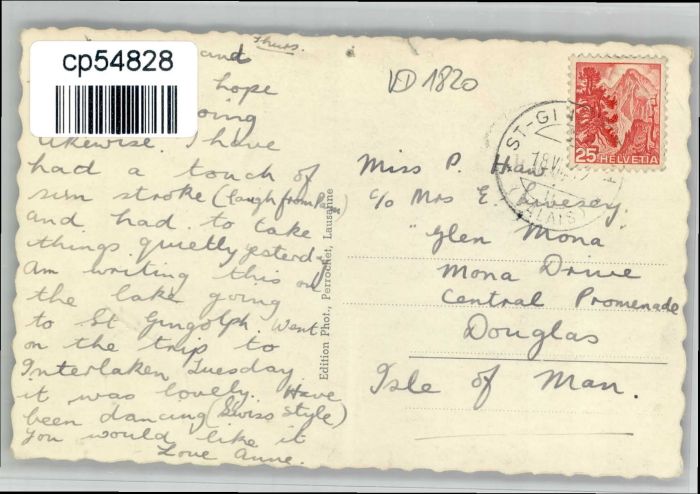 Thurs.
cp54828
and
hope
oing
likewise. I have
had a touch of
sun stroke (laugh from Pam)
and had to take
things quietly yesterday
Am writing this on
the lake going
to St Gingolph. Went
on the trip to
Interlaken Tuesday
it was lovely. Have
been dancing (Swiss style)
you would like it
Love Anne.
Edition Phot., Perrochet, Lausanne
VD 1820
25 HELVETIA
ST-GI
18.VII
(VALAIS)
Miss P.
c/o Mrs E. Livesey,
"Glen Mona"
Mona Drive
Central Promenade
Douglas
Isle of Man.